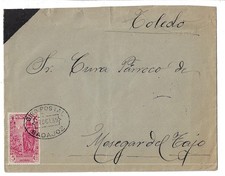 Toledo
Sr. Cura Párroco de
Mesegar del Tajo
BADAJOZ